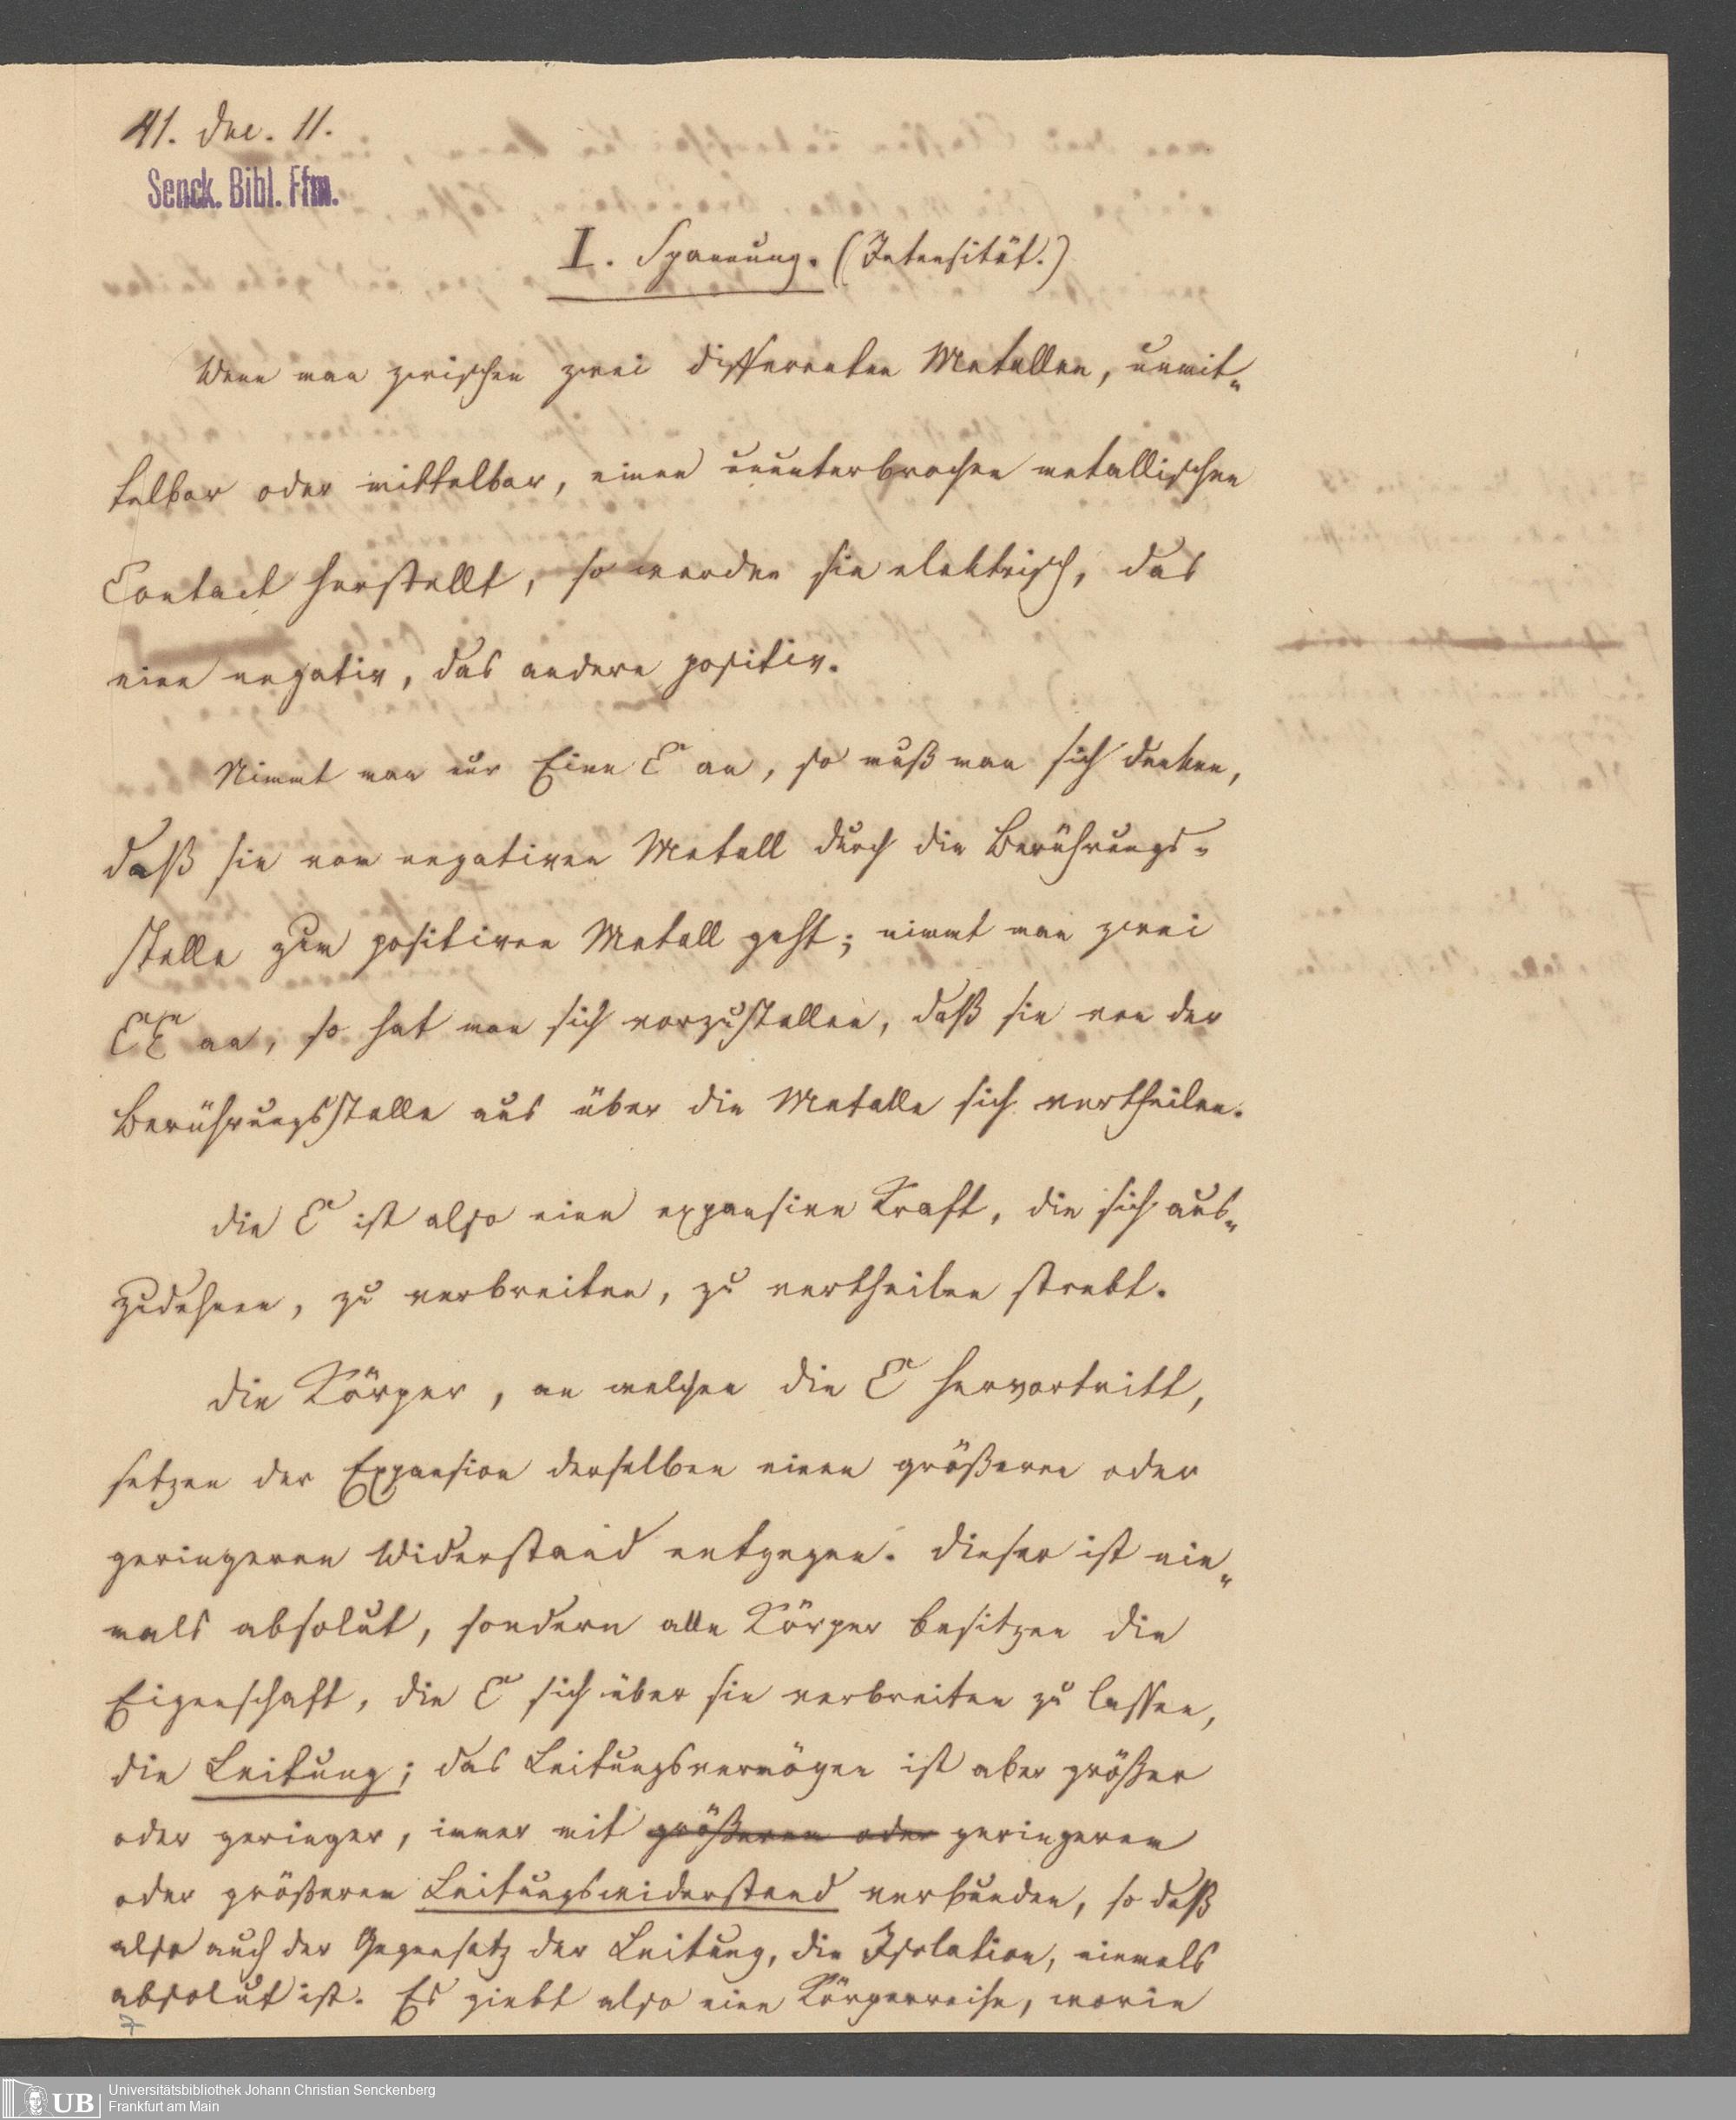 41. Dec. 11.
Senck. Bibl. Ffm.
I. Spannung. (Intensität.)
Wenn man zwischen zwei differenten Metallen, unmit„
telbar oder mittelbar, einen ununterbrochen metallischen
Contact herstellt, so werden sie elektrisch, das
eine negativ, das andere positiv.
Nimmt man nur Eine E an, so muß man sich denken,
daß sie vom negativen Metall durch die Berührungs„
stelle zum positiven Metall geht; nimmt man zwei
EE an, so hat man sich vorzustellen, daß sie von der
Berührungsstelle aus über die Metalle sich vertheilen.
Die E ist also eine expansive Kraft, die sich aus„
zudehnen, zu verbreiten, zu vertheilen strebt.
Die Körper, an welchen die E hervortritt,
setzen der Expansion derselben einen größeren oder
geringeren Widerstand entgegen. Dieser ist nie„
mals absolut, sondern alle Körper besitzen die
Eigenschaft, die E sich über sie verbreiten zu lassen,
die Leitung; das Leitungsvermögen ist aber größer
oder geringer, immer mit größeren oder geringeren
oder größeren Leitungswiderstand verbunden, so daß
also auch der Gegensatz der Leitung, die Isolation, niemals
absolut ist. Es giebt also eine Körperreihe, worin
7
UB
Universitätsbibliothek Johann Christian Senckenberg
Frankfurt am Main